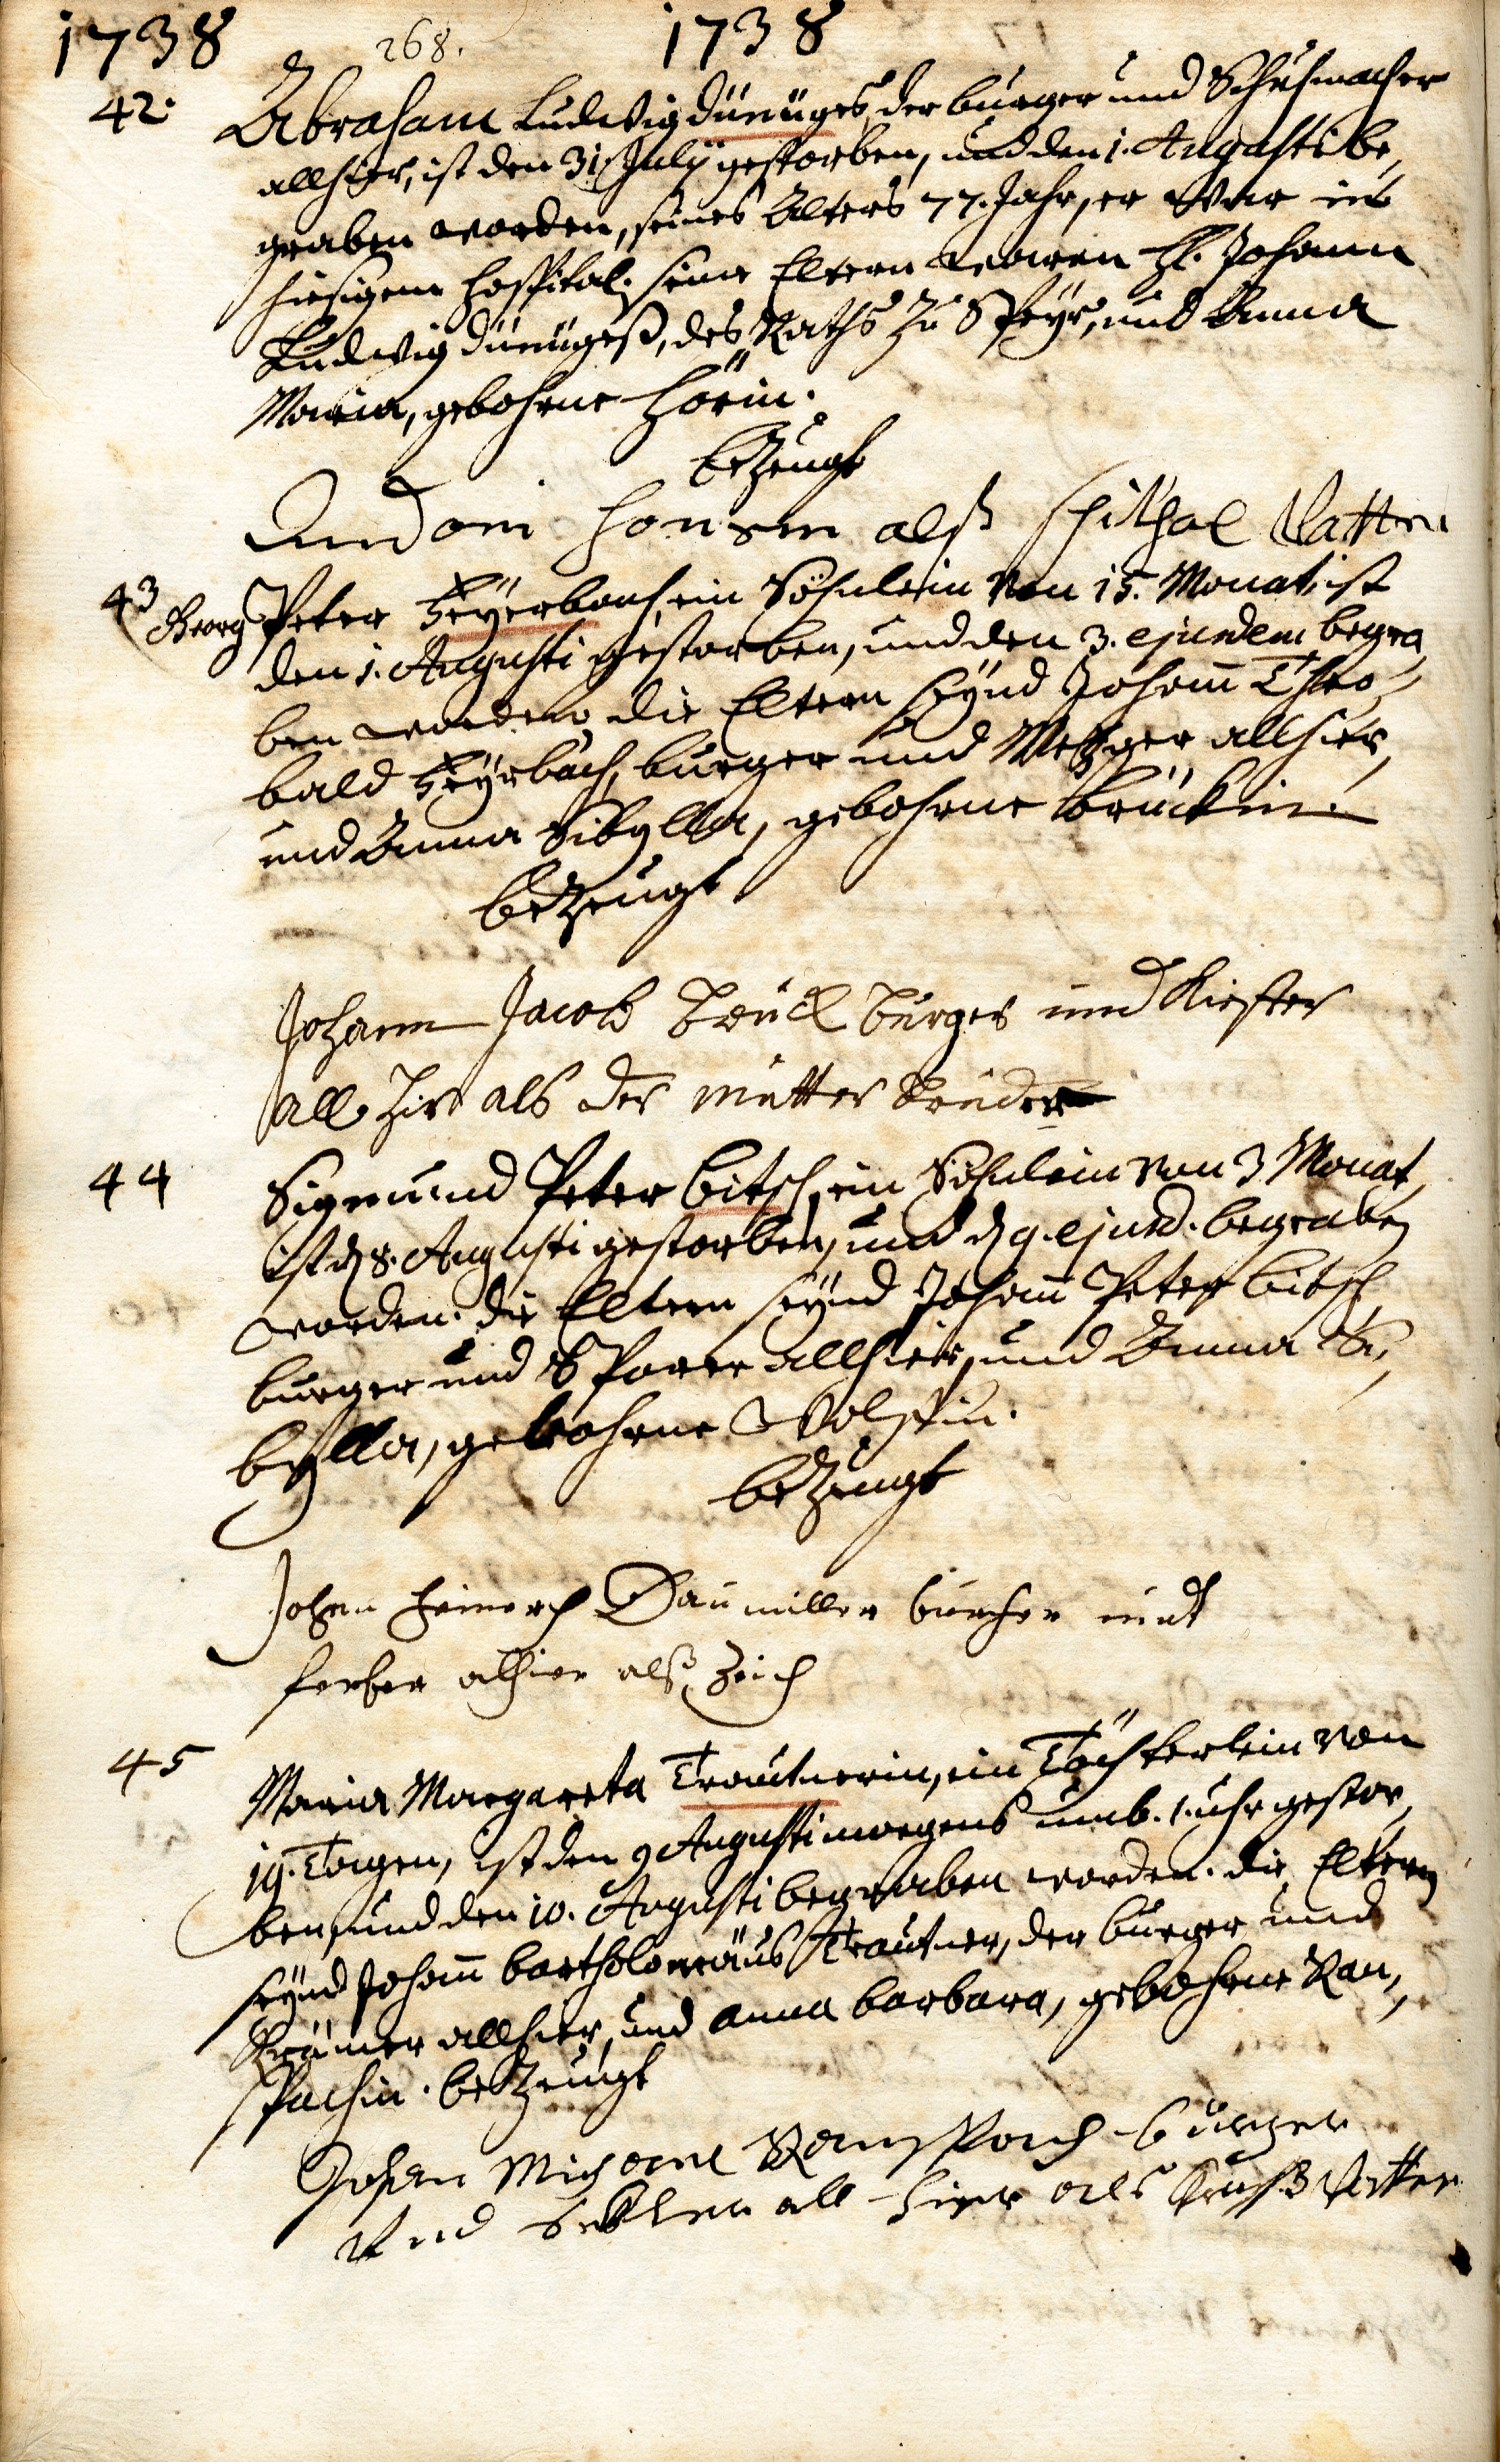 1738 268. 1738
42. Abraham Ludwig dünüges, der burger und Schuhmacher
allhier, ist den 31 July gestorben, und den 1. Augusti be,
graben worden, seines Alters 77. Jahr, er war im
hiesigem Hospital. seine Eltern waren H. Johann
Ludwig dünügeß, des Raths zu Speyr, und Anna
Maria, gebohrne
bezeugt
alß Vatter
43 Georg Peter Feyerbach, ein Söhnlein von 15. Monat, ist
den 1. Augusti gestorben, und den 3. ejusdem begra,
ben worden, die Eltern seynd Johann Theo-
bald Feyrbach, burger und Metzger allhier,
und Anna Sibylla, gebohrne Brückin.
bezeugt
Johann Jacob Bruck Burger und Kiefer
all hier als der mutter Bruder
44 Sigmund Peter bitsch, ein Söhnlein von 3 Monat,
ist d. 8. Augusti gestorben, und d 9. ejusd. begraben
worden. die Eltern seynd Johann Peter bitsch
burger und Sporer allhier, und Anna Si,
bylla, gebohrne
bezeugt
Johan Heinerch Daumiller burher undt
ferber alhier alß Zeich
45 Maria Margareta Trautnerin, ein Töchterlein von
19. Tagen, ist den 9 Augusti morgens umb. 1. uhr gestor,
ben, und den 10. Augusti begraben worden. die Eltern
seynd Johann bartholomäus Trautner, der burger und
Krämer allhier, und anna barbara, gebohrne Ran,
spachin. bezeugt
Johan Michael Ranspach burger
Vnd all hier als Vatter